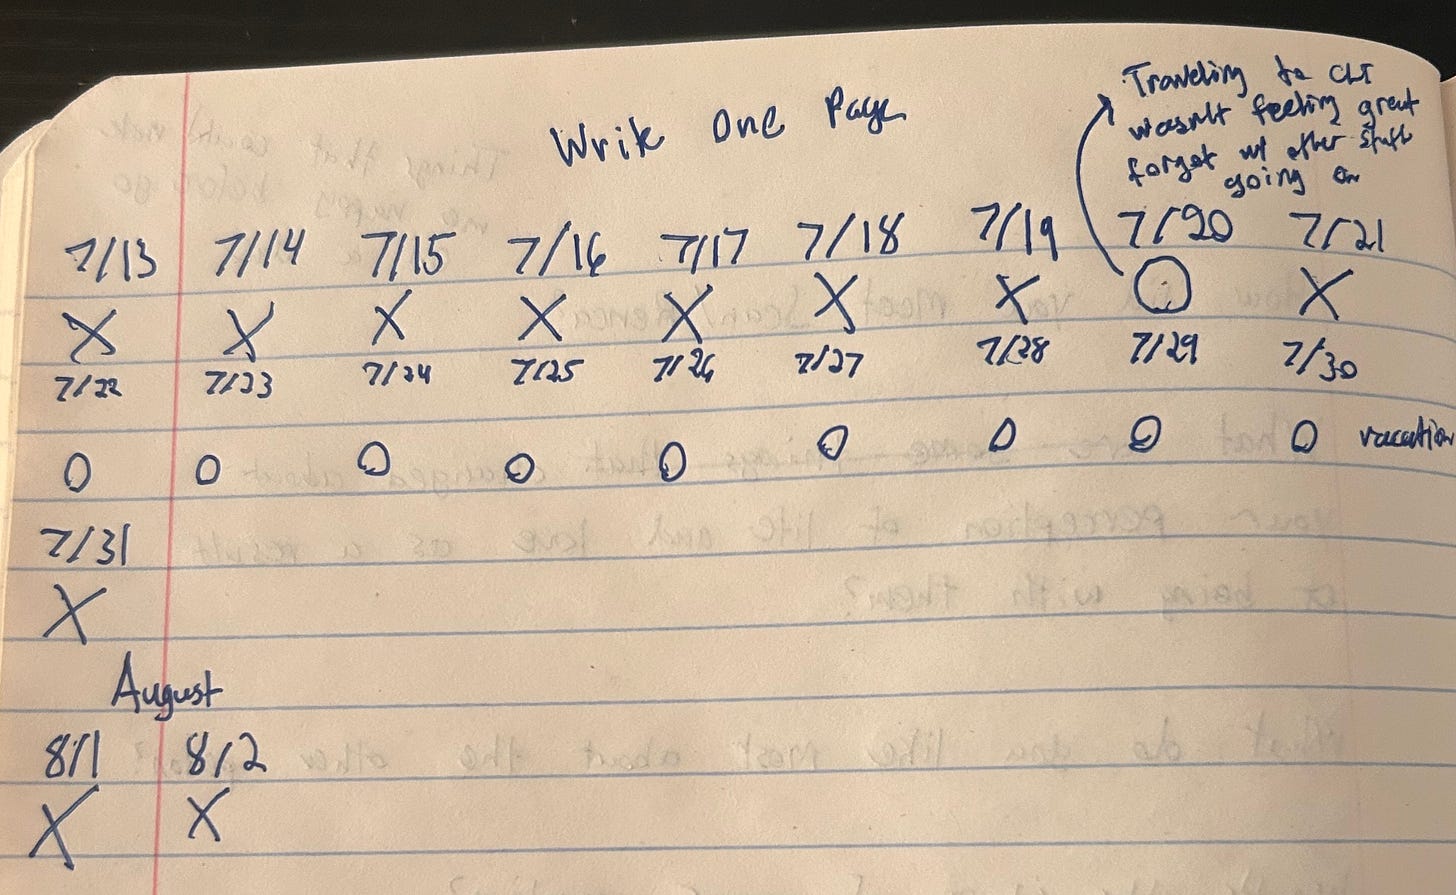 Traveling to CLT
wasn't feeling great
forgot w/ other stuff
going on
Write One Page
7/13 7/14 7/15 7/16 7/17 7/18 7/19 7/20 7/21
X X X X X X X O X
7/22 7/23 7/24 7/25 7/26 7/27 7/28 7/29 7/30
O O O O O O O O O vacation
7/31
X
August
8/1 8/2
X X